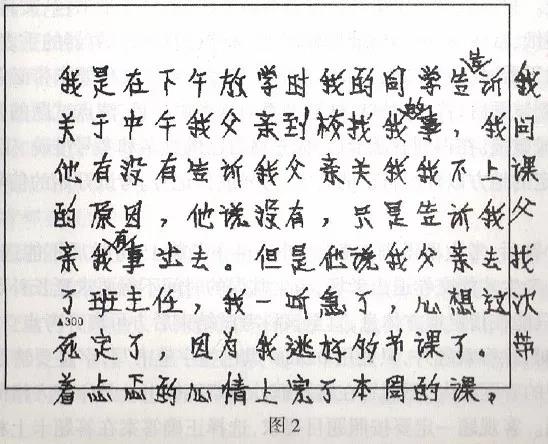 告
我是在下午放学时我的同学告诉我
故
关于中午我父亲到校找我事，我问
他有没有告诉我父亲关我我不上课
的原因，他说没有，只是告诉我父
有
亲我事出去。但是他说我父亲去找
了班主任，我一听急了，心想这次
▲300
死定了，因为我逃好的节课了。带
着忐忑的心情上完了本周的课，
图2